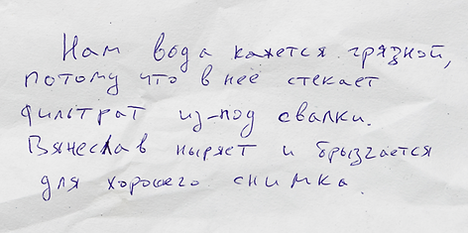 Нам вода кажется грязной,
потому что в неё стекает
фильтрат из-под свалки.
Вячеслав ныряет и брызгается
для хорошего снимка